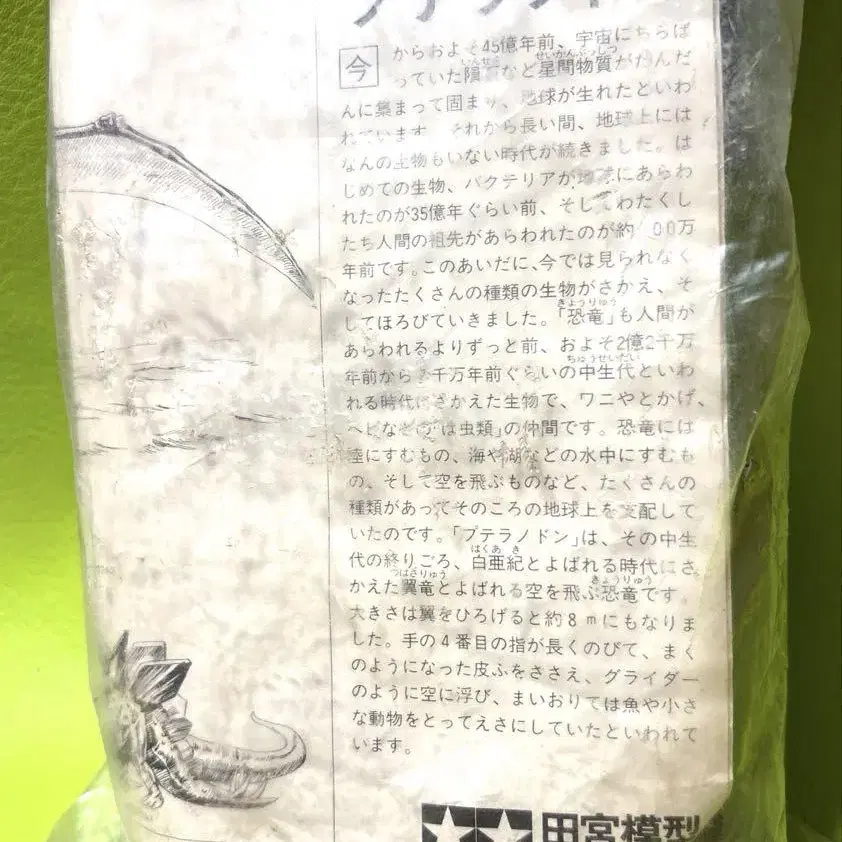 プテラノドン
今からおよそ45億年前、宇宙にちらば
っていた隕 など星間物質がだんだ
んに集まって固まり、地球が生れたといわ
れています。それから長い間、地球上には
なんの生物もいない時代が続きました。は
じめての生物、バクテリアが地球にあらわ
れたのが35億年ぐらい前、そしてわたくし
たち人間の祖先があらわれたのが約 00万
年前です。このあいだに、今では見られなく
なったたくさんの種類の生物がさかえ、そ
してほろびていきました。「恐竜」も人間が
あらわれるよりずっと前、およそ2億2千万
年前から 千万年前ぐらいの中生代といわ
れる時代にさかえた生物で、ワニやとかげ、
ヘビなどの「は虫類」の仲間です。恐竜には
陸にすむもの、海や湖などの水中にすむも
の、そして空を飛ぶものなど、たくさんの
種類があってそのころの地球上を支配して
いたのです。「プテラノドン」は、その中生
代の終りごろ、白亜紀とよばれる時代にさ
かえた翼竜とよばれる空を飛ぶ恐竜です。
大きさは翼をひろげると約8mにもなりま
した。手の4番目の指が長くのびて、まく
のようになった皮ふをささえ、グライダー
のように空に浮び、まいおりては魚や小さ
な動物をとってえさにしていたといわれて
います。
田宮模型